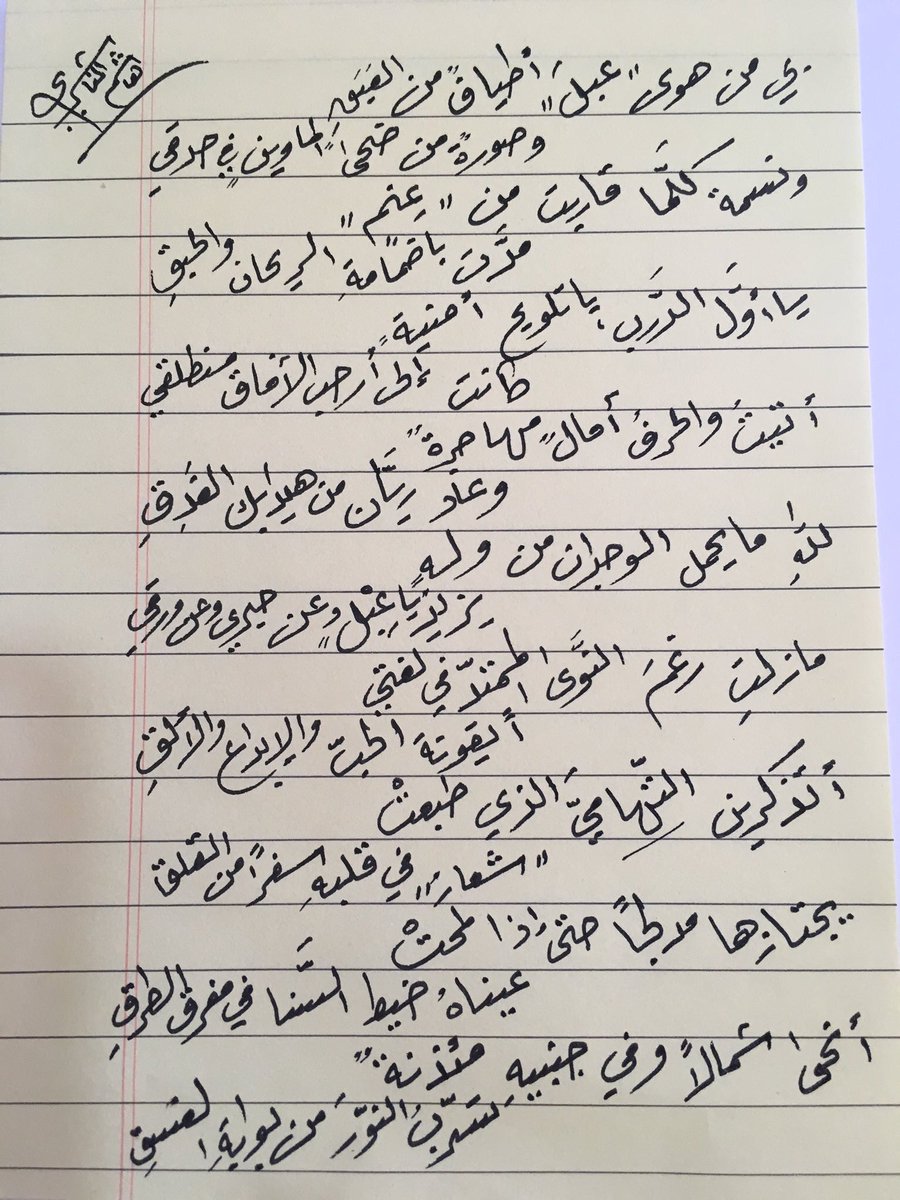 بي من هوى "عبلَ" أطيافٌ من العَبَقِ
وصورةٌ من ضحى "الماوين" في حدقي
ونسمة كلّما قاربت من "عِنم"
مرّت بإضمامةِ الريحان والحبقِ
يا أوّل الدَّرب، يا تلويح أمنيةٍ
كانت إلى أرحب الآفاق منطلقي
أتيتُ والحرفُ آمالٌ مهاجرةٌ
وعاد ريّان من هيدابك الغَدِقِ
للهِ ما يحمل الوجدان من ولهٍ
يزيد يا "عبْل" عن حبري وعن ورقي
ما زلتِ رغمَ النَّوى الممتدّ في لغتي
أيقونةَ الحبّ والإبداع والألقِ
أتذكرين التّهاميَّ الذي طبعتْ
"شعار" في قلبهِ سفراً من القلق
يجتازها مدلجاً حتى إذا لمحتْ
عيناهُ خيط السَّنا في مفرق الطرقِ
أنحى شمالاً وفي جنبيهِ مئذنةٌ
تسرّبُ النّورَ من بوابةِ الغسقِ